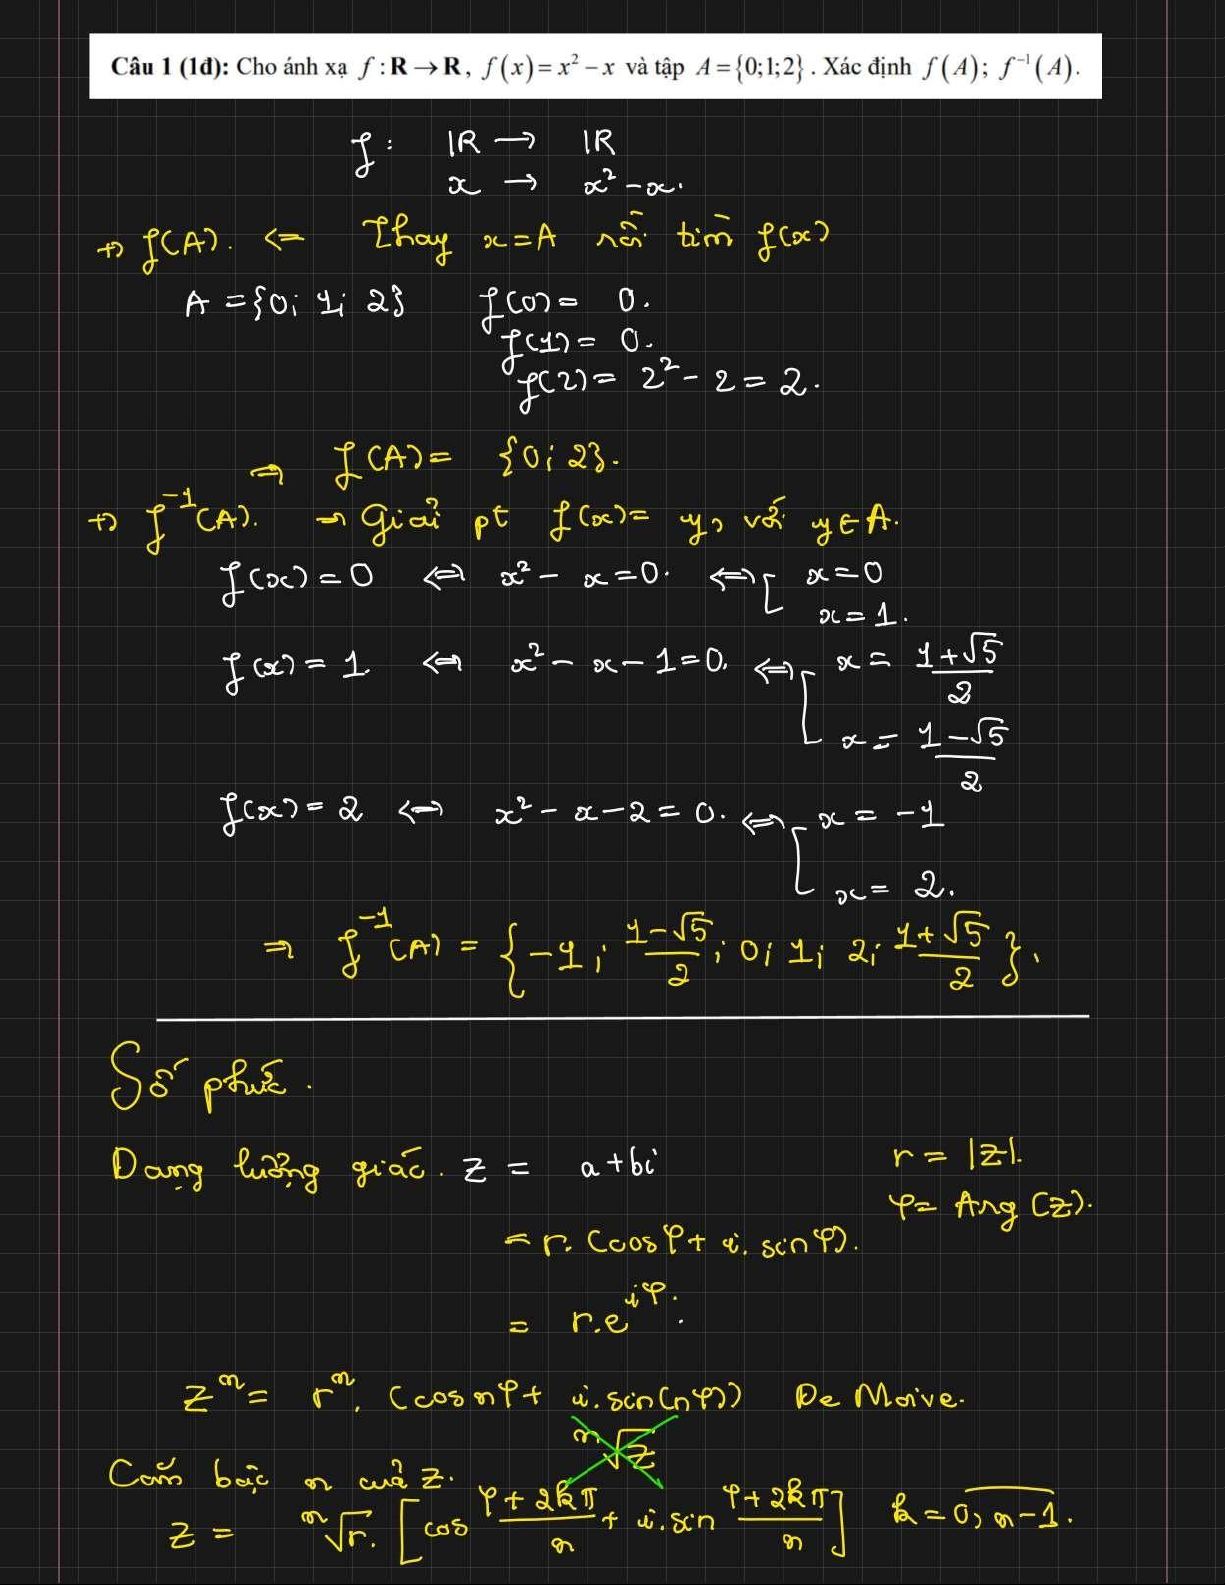 Câu 1 (1đ): Cho ánh xạ f : R → R, f(x) = x² − x và tập A = {0;1;2}. Xác định f(A); f⁻¹(A).
f: ℝ → ℝ
x → x² − x.
+) f(A). <= Thay x = A rồi tìm f(x)
A = {0; 1; 2} f(0) = 0.
f(1) = 0.
f(2) = 2² − 2 = 2.
⇒ f(A) = {0; 2}.
+) f⁻¹(A). → Giải pt f(x) = y, với y ∈ A.
f(x) = 0 ⇔ x² − x = 0. ⇔ [ x = 0
x = 1.
f(x) = 1 ⇔ x² − x − 1 = 0. ⇔ [ x = (1+√5)/2
x = (1−√5)/2
f(x) = 2 ⇔ x² − x − 2 = 0. ⇔ [ x = −1
x = 2.
⇒ f⁻¹(A) = {−1; (1−√5)/2; 0; 1; 2; (1+√5)/2}.
Số phức.
Dạng lượng giác. z = a + bi r = |z|.
φ = Arg(z).
= r. (cos φ + i. sin φ).
= r.e^{iφ}.
zⁿ = rⁿ. (cos nφ + i. sin(nφ)) De Moive.
ⁿ√z
Căn bậc n của z.
z = ⁿ√r. [cos (φ + 2kπ)/n + i. sin (φ + 2kπ)/n] k = 0, n−1.